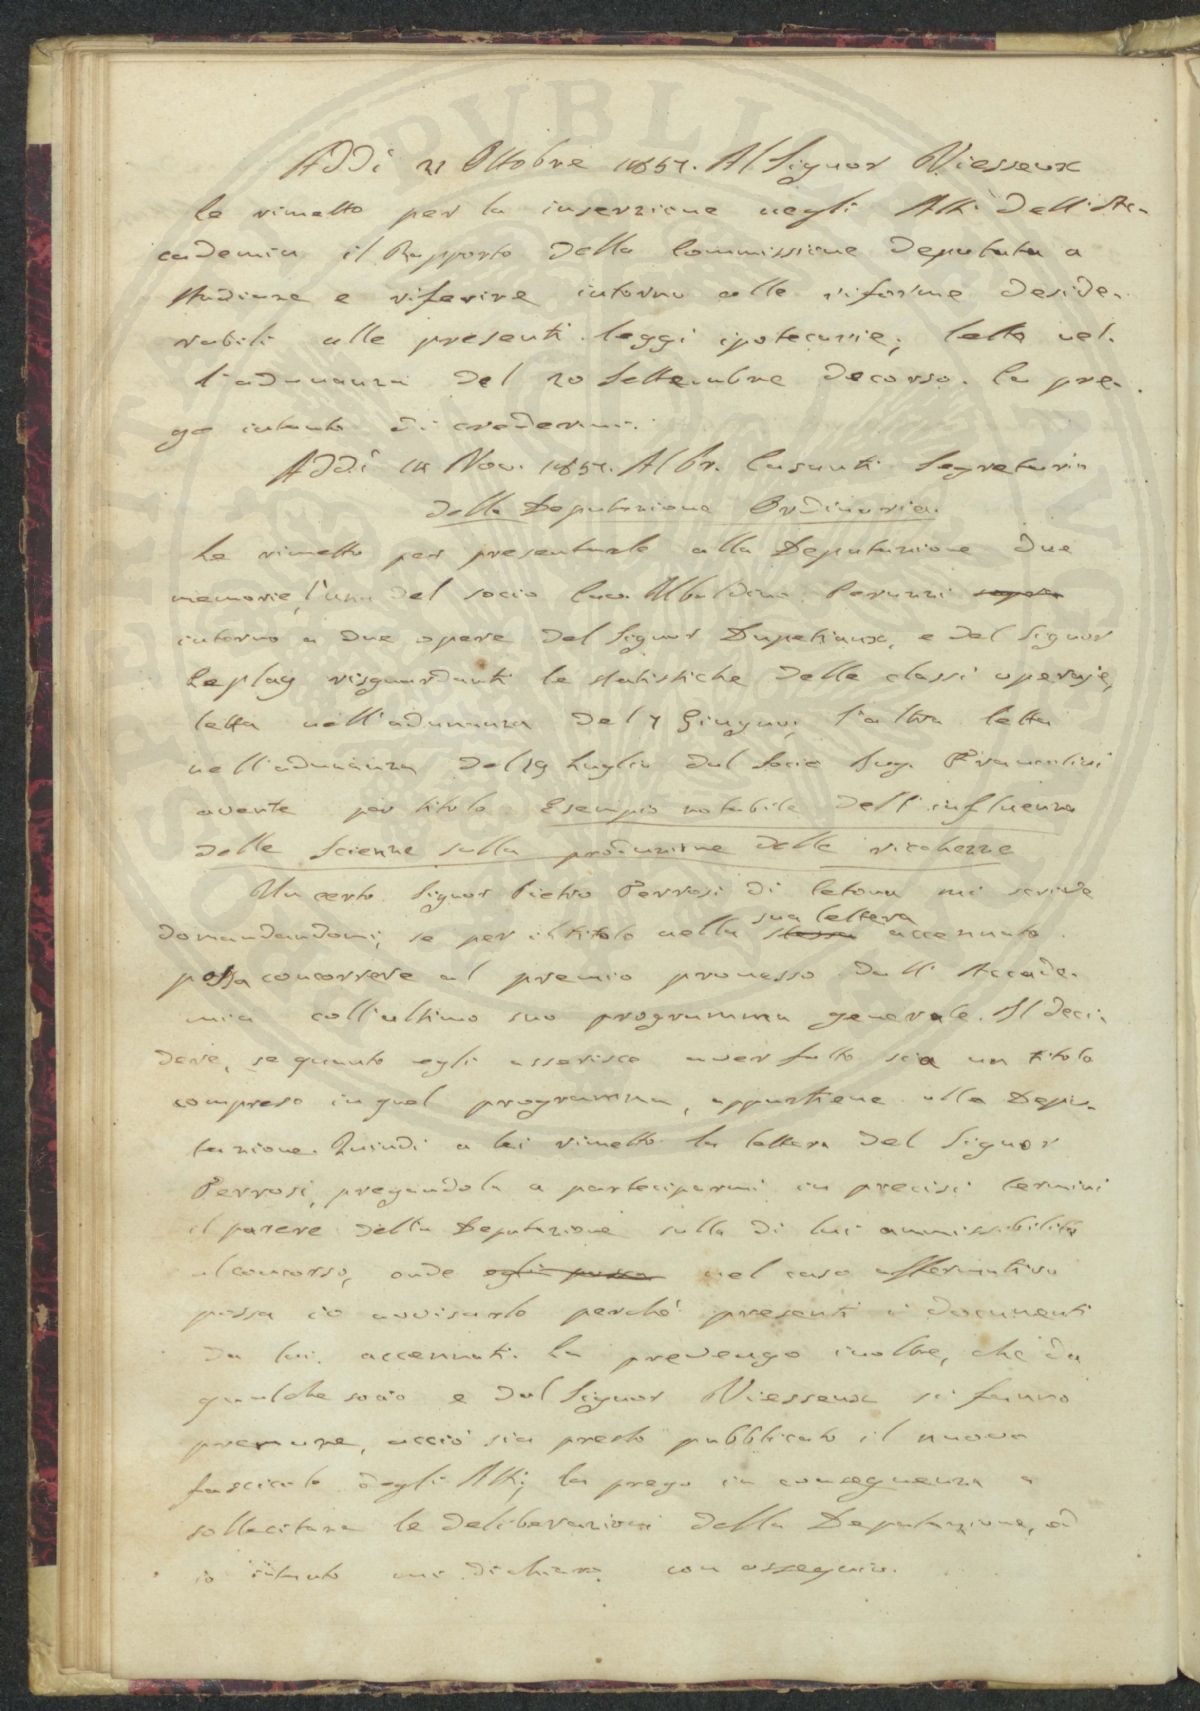 Addì 21 Ottobre 1857. Al Signor Viesseux
Le rimetto per la inserzione negli Atti dell'Ac-
cademia il Rapporto della Commissione deputata a
studiare e riferire intorno alle riforme deside-
rabili alle presenti leggi ipotecarie, letto nel-
l'adunanza del 20 Settembre decorso. La pre-
go intanto di credermi.
Addì 14 Nov. 1857. Al Dr. Casanti Segretario
della Deputazione Ordinaria.
Le rimetto per presentarle alla Deputazione due
memorie, l'una del socio Cav. Ubaldino Peruzzi sopra
intorno a due opere del Signor Dupetiaux, e del Signor
Leplay risguardanti le statistiche delle classi operaje,
letta nell'adunanza del 7 Giugno; l'altra letta
nell'adunanza del 19 Luglio dal Socio Ing. Francolini
avente per titolo Esempio notabile dell'influenza
delle Scienze sulla produzione delle ricchezze
Un certo Signor Pietro Perrosi di Cetona mi scrive
domandandomi, se per il titolo nella stessa sua lettera accennato
possa concorrere al premio promesso dall'Accade-
mia coll'ultimo suo programma generale. Il deci-
dere, se quanto egli asserisce aver fatto sia un titolo
compreso in quel programma, appartiene alla Depu-
tazione. Quindi a lei rimetto la lettera del Signor
Perrosi, pregandola a parteciparmi in precisi termini
il parere della Deputazione sulla di lui ammissibilità
al concorso, onde egli possa nel caso affermativo
possa io avvisarlo perché presenti i documenti
da lui accennati. La prevengo inoltre, che da
qualche socio e dal Signor Viesseux si fanno
premure, acciò sia presto pubblicato il nuovo
fascicolo degli Atti; la prego in conseguenza a
sollecitare le deliberazioni della Deputazione, ed
io intanto mi dichiaro con ossequio.